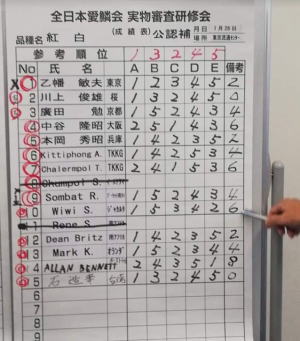 全日本愛鱗会 実物審査研修会
品種 紅白 (成績表) 公認補 月日 7月28日
場所 東京流通センター
参考順位 1 3 2 4 5
No 氏名 A B C D E 備考
1 乙幡 敏夫 東京 1 2 3 5 2
2 川上 俊雄 桜 1 3 2 4 5 0
3 廣田 勉 京都 1 5 2 4 3 4
4 中谷 隆昭 大阪 2 5 1 4 3 6
5 本岡 秀昭 兵庫 1 4 2 3 5 2
6 Kittiphong A. TKKG 1 4 2 5 3 4
7 Chalermpol T. TKKG 2 4 1 5 3 6
8 Chumpol S.
9 Sombat R. 1 5 2 4 3 4
0 Wiwi S. 1 5 3 4 2 6
1 Rene S.
2 Dean Britz 1 4 2 3 5 2
3 Mark K. オランダ 1 5 2 3 4 4
4 ALLAN BENNETT 2 4 3 5 1 8
5 台湾 1 3 2 4 5 0
6
7
8
9
0